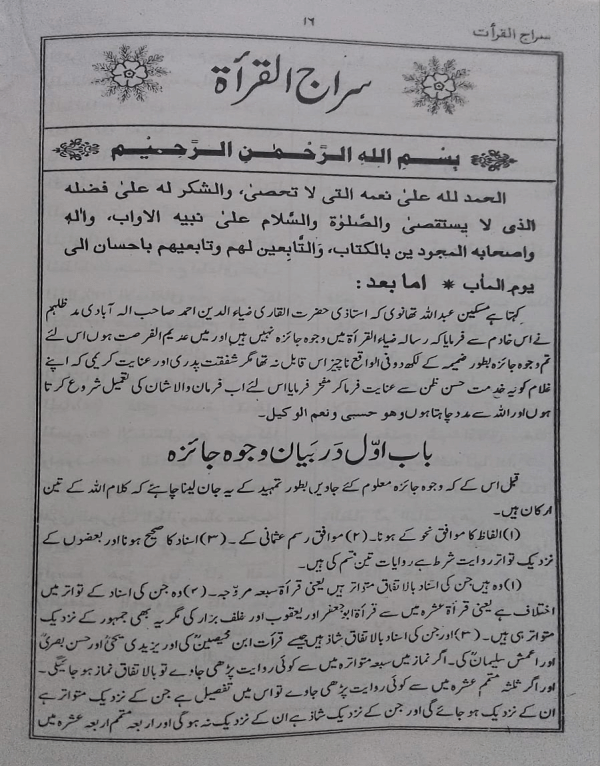 سراج القرأت
۱۶
سراج القرأۃ
بِسْمِ اللهِ الرَّحْمٰنِ الرَّحِيْمِ
الحمد لله علىٰ نعمه التى لا تحصىٰ، والشكر له علىٰ فضله
الذى لا يستقصىٰ والصّلوٰة والسَّلام علىٰ نبيه الاواب، واٰله
واصحابه المجودين بالكتاب، وَالتَّابِعين لهم وتابعيهم باحسان الى
يوم المآب * اما بعد :
کہتا ہے مسکین عبداللہ تھانوی کہ استاذی حضرت القاری ضیاء الدین احمد صاحب الہ آبادی مدظلہم
نے اس خادم سے فرمایا کہ رسالہ ضیاء القرأۃ میں وجوہ جائزہ نہیں ہیں اور میں عدیم الفرصت ہوں اس لئے
تم وجوہ جائزہ بطور ضمیمہ کے لکھ دو فی الواقع ناچیز اس قابل نہ تھا مگر شفقت پدری اور عنایت کریمی کہ اپنے
غلام کو یہ خدمت حسن ظن سے عنایت فرما کر مفخر فرمایا اس لئے اب فرمان والا شان کی تعمیل شروع کرتا
ہوں اور اللہ سے مدد چاہتا ہوں وھو حسبی ونعم الوکیل۔
باب اوّل در بیان وجوہ جائزہ
قبل اس کے کہ وجوہ جائزہ معلوم کئے جاویں بطور تمہید کے یہ جان لینا چاہئے کہ کلام اللہ کے تین
ارکان ہیں۔
(۱) الفاظ کا موافق نحو کے ہونا۔ (۲) موافق رسم عثمانی کے۔ (۳) اسناد کا صحیح ہونا اور بعضوں کے
نزدیک تواتر روایت شرط ہے روایات تین قسم کی ہیں۔
(۱) وہ ہیں جن کی اسناد بالاتفاق متواتر ہیں یعنی قرأۃ سبعہ مروّجہ۔ (۲) وہ جن کی اسناد کے تواتر میں
اختلاف ہے یعنی قرأۃ عشرہ میں سے قرأۃ ابوجعفر اور یعقوب اور خلف بزار کی مگر یہ بھی جمہور کے نزدیک
متواتر ہی ہیں۔ (۳) اور جن کی اسناد بالاتفاق شاذ ہیں جیسے قرأت ابن محیصینؒ کی اور یزیدی یحیٰؒ اور حسن بصریؒ
اور اعمش سلیمانؒ کی۔ اگر نماز میں سبعہ متواترہ میں سے کوئی روایت پڑھی جاوے تو بالاتفاق نماز ہو جائیگی۔
اور اگر ثلثہ متمم عشرہ میں سے کوئی روایت پڑھی جاوے تو اس میں تفصیل ہے جن کے نزدیک متواتر ہے
ان کے نزدیک ہو جائے گی اور جن کے نزدیک شاذ ہے ان کے نزدیک نہ ہوگی اور اربعہ متمم اربعہ عشرہ میں